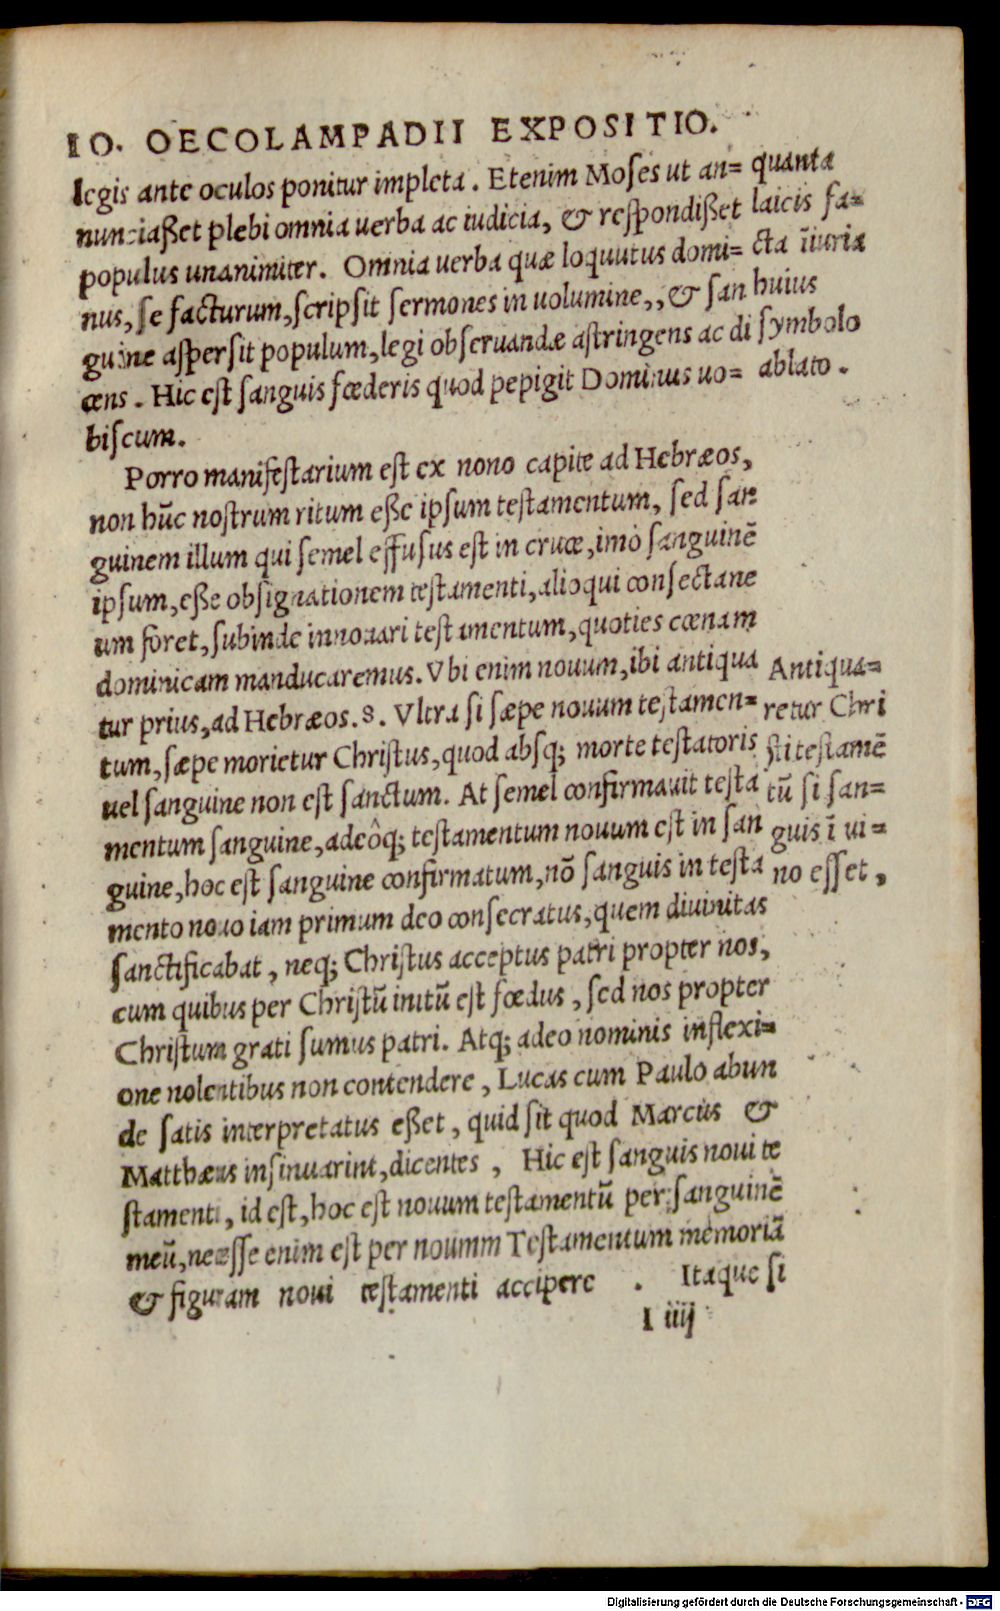 IO. OECOLAMPADII EXPOSITIO.
legis ante oculos ponitur impleta. Etenim Moses ut an=
nunciasset plebi omnia uerba ac iudicia, & respondisset
populus unanimiter. Omnia uerba quæ loquutus domi=
nus, se facturum, scripsit sermones in uolumine,, & san
guine aspersit populum, legi obseruandæ astringens ac di
cens. Hic est sanguis fœderis quod pepigit Dominus uo=
biscum.
quanta
laicis fa=
cta īiuria
huius
symbolo
ablato.
Porro manifestarium est ex nono capite ad Hebræos,
non hūc nostrum ritum esse ipsum testamentum, sed san
guinem illum qui semel effusus est in cruce, imo sanguinē
ipsum, esse obsignationem testamenti, alioqui consectane
um foret, subinde innouari testamentum, quoties cœnam
dominicam manducaremus. Vbi enim nouum, ibi antiqua
tur prius, ad Hebræos.8. Vltra si sæpe nouum testamen=
tum, sæpe morietur Christus, quod absq; morte testatoris
uel sanguine non est sanctum. At semel confirmauit testa
mentum sanguine, adeôq; testamentum nouum est in san
guine, hoc est sanguine confirmatum, nō sanguis in testa
mento nouo iam primum deo consecratus, quem diuinitas
sanctificabat, neq; Christus acceptus patri propter nos,
cum quibus per Christū initū est fœdus, sed nos propter
Christum grati sumus patri. Atq; adeo nominis inflexi=
one nolentibus non contendere, Lucas cum Paulo abun
de satis interpretatus esset, quid sit quod Marcus &
Matthæus insinuarint, dicentes, Hic est sanguis noui te
stamenti, id est, hoc est nouum testamentū per sanguinē
meū, necesse enim est per noumm Testamentum memoriā
& figuram noui testamenti accipere. Itaque si
Antiqua=
retur Chri
sti testamē
tū si san=
guis ī ui=
no esset,
I iiij
Digitalisierung gefördert durch die Deutsche Forschungsgemeinschaft - DFG